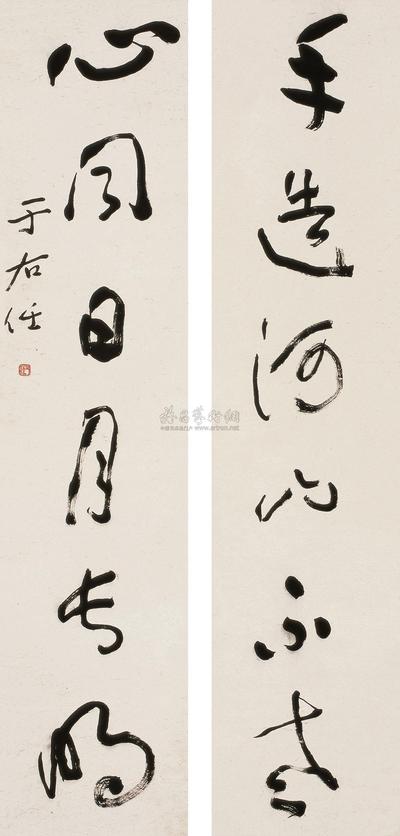 手造河山不老
心同日月长明
于右任